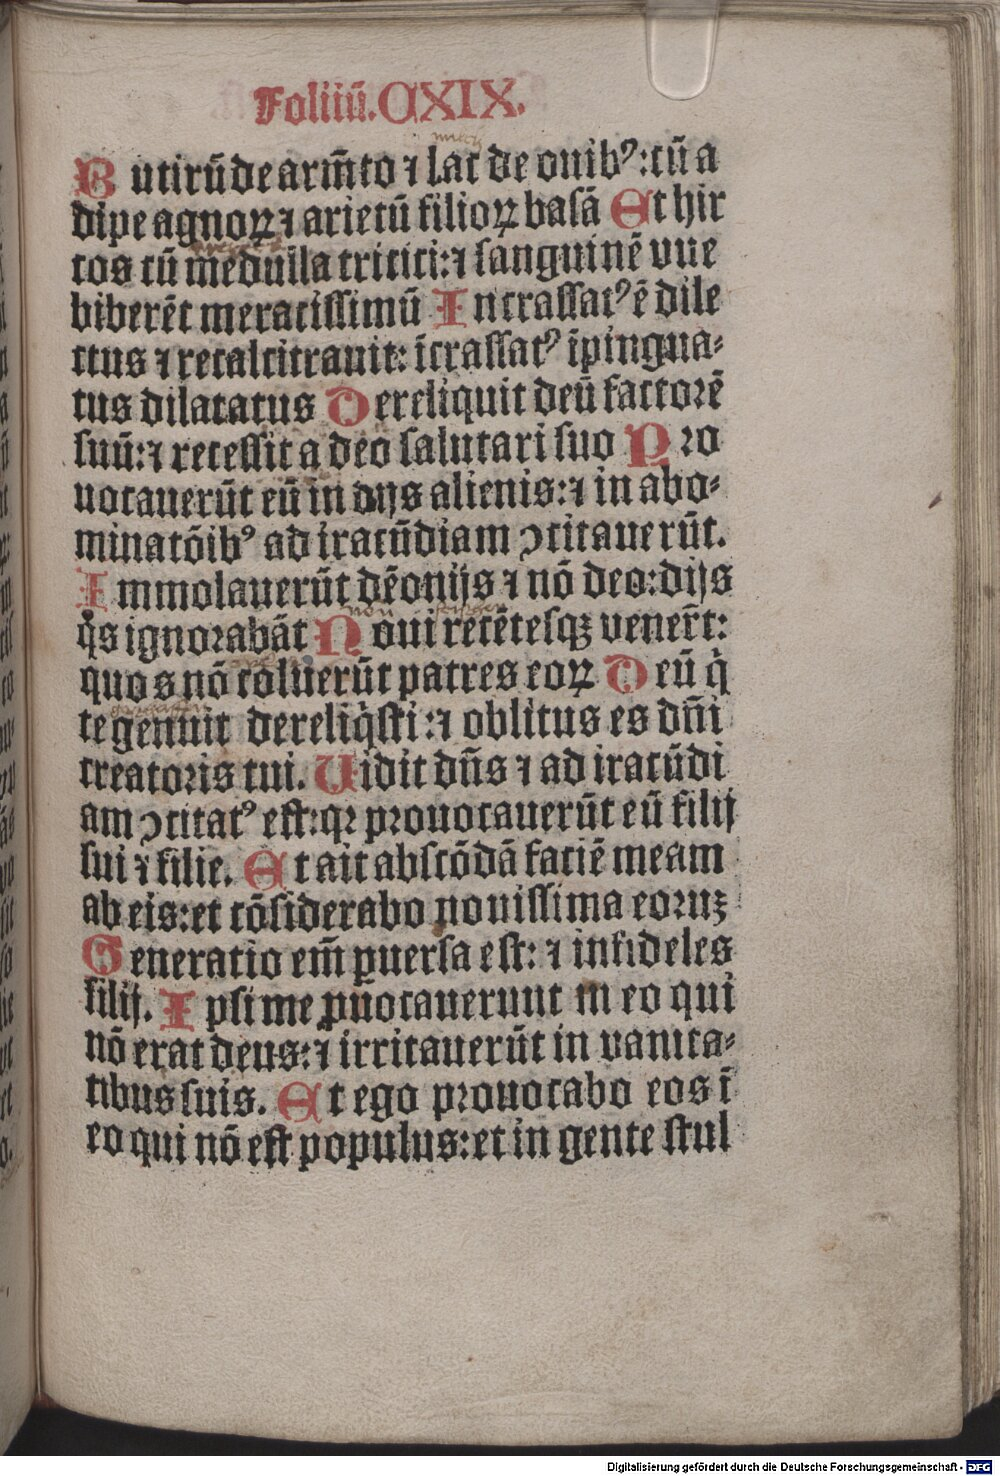 Foliiū. CXIX.
Butirū de arm̄to ⁊ lac de ouibꝰ: cū a
dipe agnoꝝ ⁊ arietū filioꝝ basā Et hir
cos cū medulla tritici: ⁊ sanguinē vue
biberēt meracissimū Incrassatꝰ ē dile
ctus ⁊ recalcitrauit: īcrassatꝰ īpingua-
tus dilatatus Dereliquit deū factorē
suū: ⁊ recessit a deo salutari suo Pro
uocauerūt eū in dijs alienis: ⁊ in abo-
minatōibꝰ ad iracūdiam ꝯcitauerūt.
Immolauerūt dēonijs ⁊ nō deo: dijs
qͦs ignorabāt Noui recētesqꝫ venerūt:
quos nō coluerūt patres eoꝝ Deū qͥ
te genuit dereliqͥsti: ⁊ oblitus es dn̄i
creatoris tui. Uidit dn̄s ⁊ ad iracūdi
am ꝯcitatꝰ est: qꝛ prouocauerūt eū filij
sui ⁊ filie. Et ait abscōdā faciē meam
ab eis: et cōsiderabo nouissima eoruꝫ
Generatio em̄ ꝑuersa est: ⁊ infideles
filij. Ipsi me ꝓuocauerunt in eo qui
nō erat deus: ⁊ irritauerūt in vanita-
tibus suis. Et ego prouocabo eos ī
eo qui nō est populus: et in gente stul
Digitalisierung gefördert durch die Deutsche Forschungsgemeinschaft - DFG